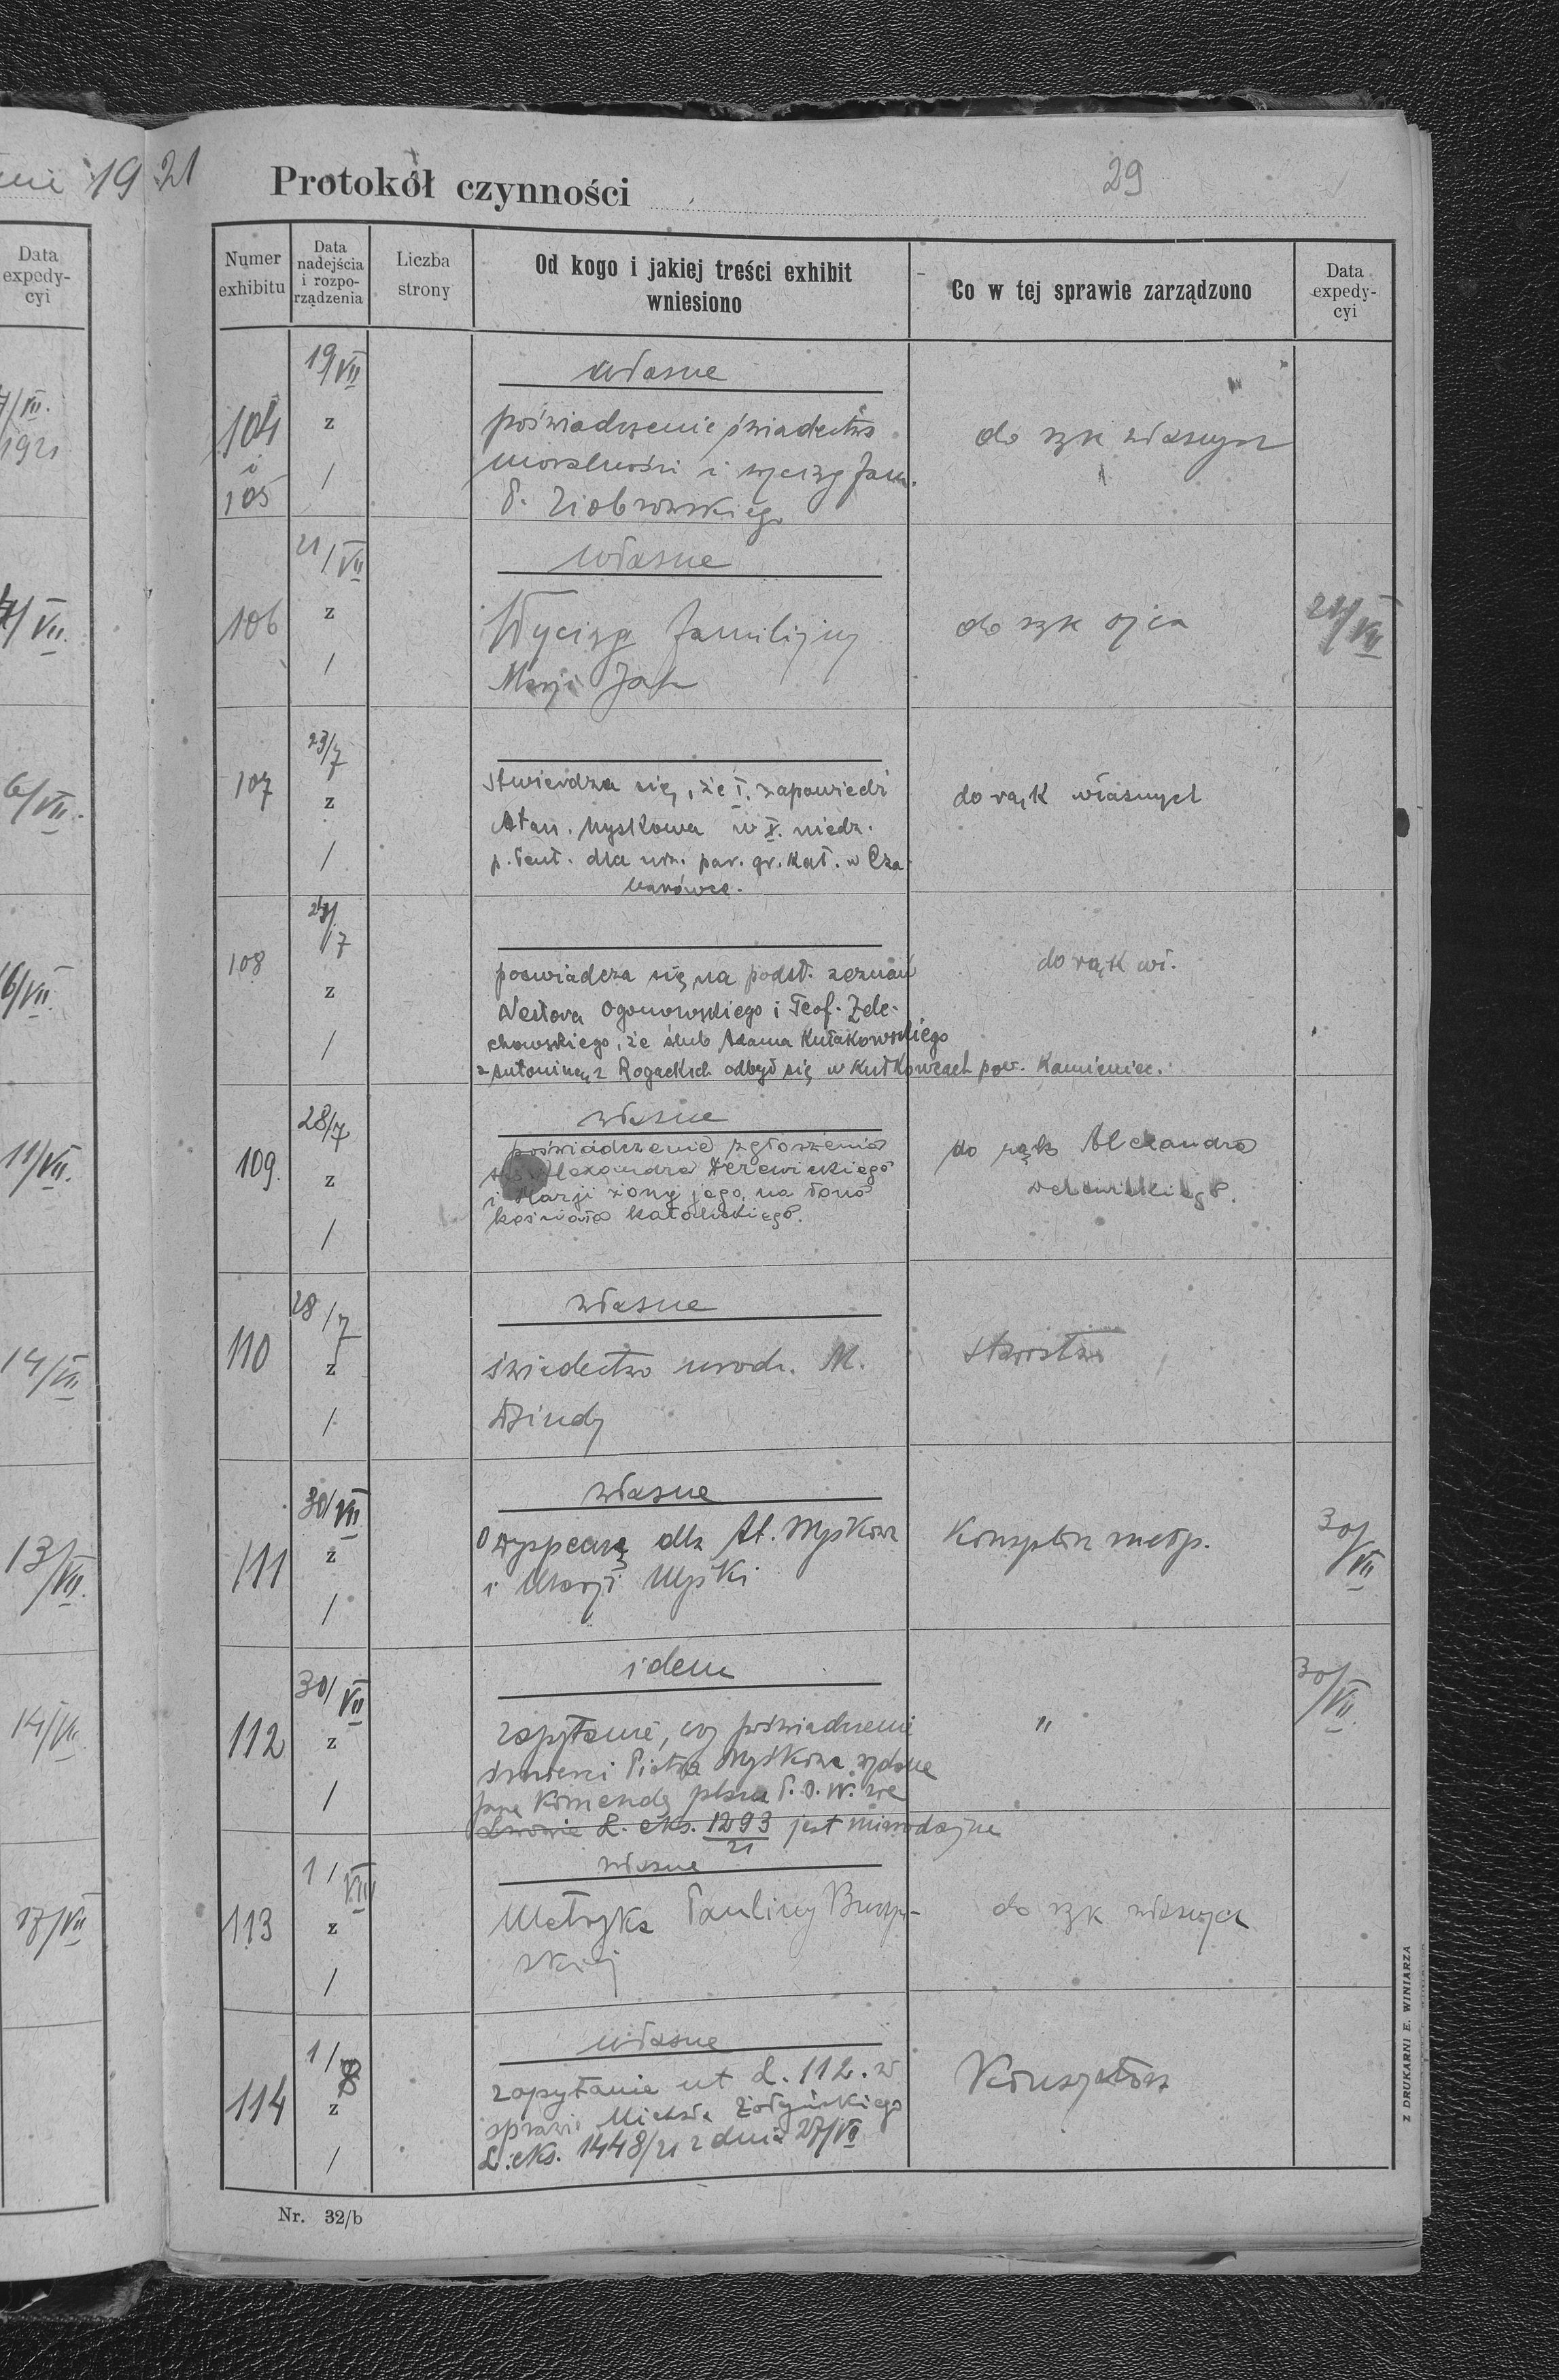 19 21
Data
expedy-
cyi
7/VII.
1921
VII.
6/VII.
6/VII.
11/VII.
14/VII
13/VII.
14/VII.
17/VII
Protokół czynności
29
Numer
exhibitu
Data
nadejścia
i rozpo-
rządzenia
Liczba
strony
Od kogo i jakiej treści exhibit
wniesiono
Co w tej sprawie zarządzono
Data
expedy-
cyi
104
i
105
19/VII
z
/
własne
poświadczenie świadectwa
moralności i wyciąg fam.
P. Ziobrowskiego
do rąk własnych
106
21/VII
z
/
własne
Wyciąg familijny
Marji Jah
do rąk ojca
21/VII
107
23/7
z
/
Stwierdza się, że I. zapowiedź
Atan. Myśkowa w X. niedz.
p. Pent. dla urz. par. gr. kat. w Cza-
banówce.
do rąk własnych
108
z
/
poświadcza się na podst. zeznań
Nestora Ogonowskiego i Teof. Zele-
chowskiego, że ślub Adama Kułakowskiego
z Antoniną z Rogackich odbył się w Kutkowcach pow. Kamieniec.
do rąk wł.
109.
28/7
z
/
własne
poświadczenie zgłoszenia
i Marji żony jego, na łono
kościoła katolickiego.
do rąk Alexandra
110
28/7
z
/
własne
świadectwo urodz. M.
Dzindy
Starostwo
111
30/VII
z
/
własne
O dyspensę dla At. Myśkowa
i Marji Myśki
Konsystorz metrop.
30/VII
112
30/VII
z
/
idem
zapytanie, czy poświadczenie
śmierci Piotra Myśkowa wydane
przez Komendę placu P. O. W. we
Lwowie L. eks. 1293/21 jest miarodajne
"
30/VII.
113
1/VIII
z
/
własne
Metryka Pauliny Buczyń-
skiej
do rąk własnych
114
1/8
z
/
własne
zapytanie ut L. 112. w
sprawie Michała Żołyńskiego
L. eks. 1448/21 z dnia 27/VII
Konsystorz
Nr. 32/b
Z DRUKARNI E. WINIARZA